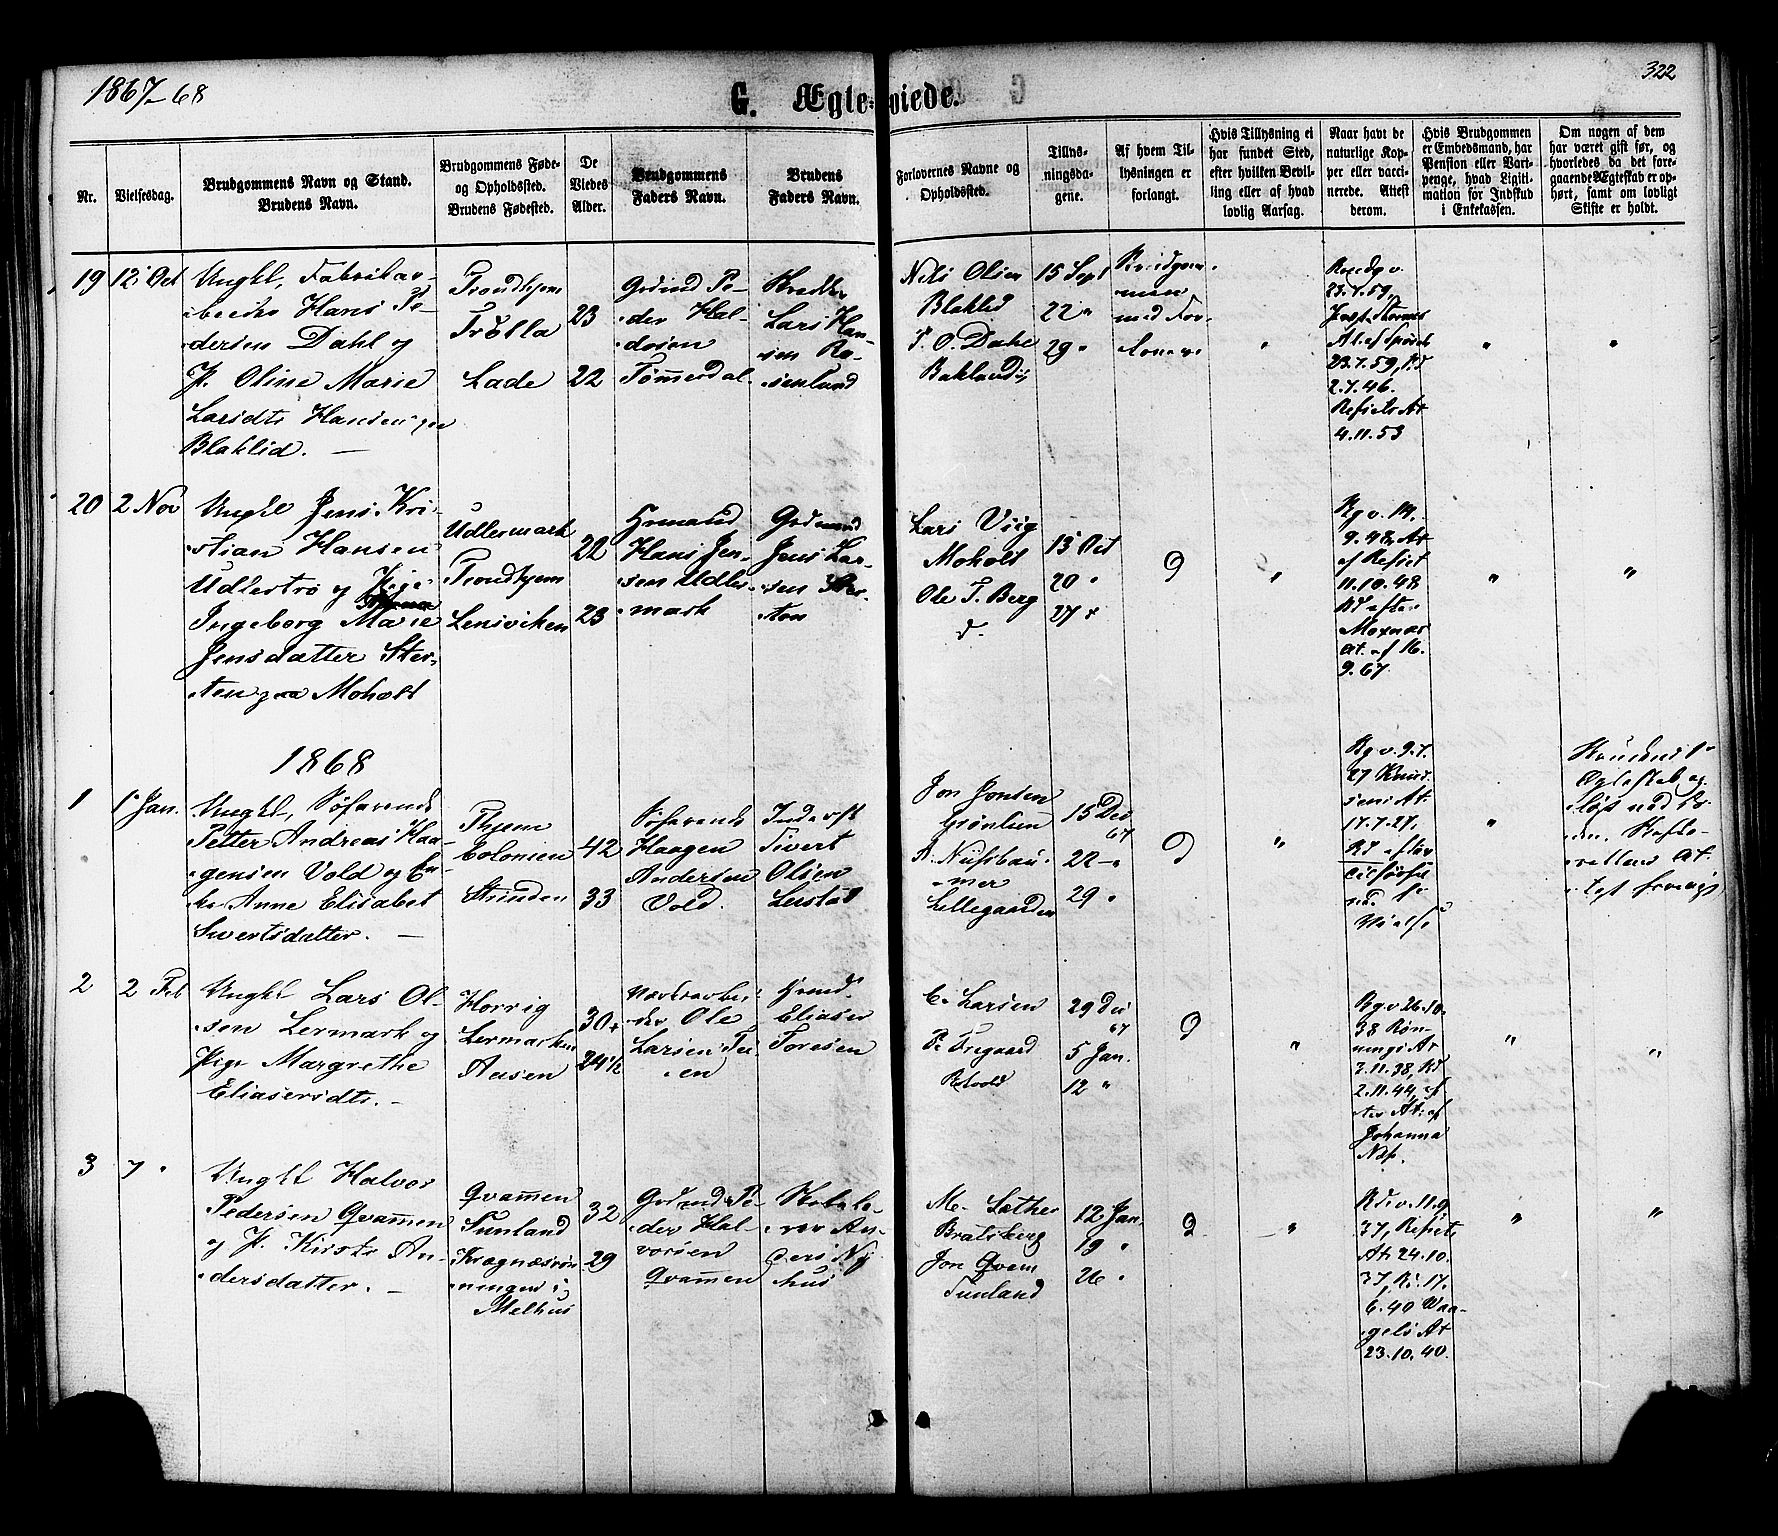 1867-68
322
G. Ægteviede.
Nr.
Vielsesdag.
Brudgommens Navn og Stand.
Brudens Navn.
Brudgommens Føde-
og Opholdssted.
Brudens Fødested.
De
Viedes
Alder.
Brudgommens
Faders Navn.
Brudens
Faders Navn.
Forlovernes Navne og
Opholdssted.
Tillys-
ningsda-
gene.
Af hvem Til-
lysningen er
forlangt.
Hvis Tillysning ei
har fundet Sted,
efter hvilken Bevil-
ling eller af hvad
lovlig Aarsag.
Naar havt de
naturlige Kop-
per eller vacci-
nerede. Attest
derom.
Hvis Brudgommen
er Embedsmand, har
Pension eller Vart-
penge, hvad Legiti-
mation for Indskud
i Enkekassen.
Om nogen af dem
har været gift før, og
hvorledes da det fore-
gaaende Ægteskab er op-
hørt, samt om lovligt
Skifte er holdt.
19
12 Oct
Ungkl, Fabrikar-
beider Hans Pe-
dersen Dahl og
P. Oline Marie
Larsdtr Hansen
Blaklid.
Trondhjem
Trolla
Lade
23
22
Gdmd Pe-
der Hal-
dosen
Tømmesdal
Lars Han-
sen Ro-
senlund
Nils Olsen
Blaklid
P. O. Dahl
Baklandet
15 Sept
22 "
29 "
Brudgom-
men
med For-
lovere
"
23.7.59,
23.7.59,
2.7.46.
4.11.53
"
"
20
2 Nov
Ungkl Jens Kri-
stian Hansen
Udlestrø og Pige
Ingeborg Marie
Jensdatter Ster-
ten paa Moholt
Udlermark
Trondhjem
Lensviken
22
23
Hans Jen-
sen Udler-
mark
Gdmand
Jens Lar-
sen Ster-
ten
Lars Viig
Moholt
Ole T. Berg
d.
13 Oct
20 "
27 "
"
"
Rg v. 14.
9.48, At
11.10.48
Moxnes
At. af 16.
9.67
"
"
1868
1
1 Jan.
Ungkl, Søfarende
Petter Andreas Haa-
gensen Vold og En-
ke Anne Elisabet
Sivertsdatter.
Thjem
Colonien
Strinden
42
33
Søfarende
Haagen
Andersen
Vold
Inderst
Sivert
Olsen
Leistad
Jon Jonsen
Grønlien
A. Nussbau-
mer
Lillegaarden
15 Dec
67
22 "
29 "
"
"
Rg v. 9.7.
27 Knud-
sens At.
17.7.27.
"
2
2 Feb
Ungkl Lars Ol-
sen Lermark og
Pige Margrethe
Eliasersdtr.
Horrig
Lermarken
Aasen
30
24 1/2
Ole
Larsen
Eliaser
Toresen
E. Larsen
29 Dec
67
5 Jan.
12 "
"
"
Rg v 26.10.
38 Røn-
nings At
3.11.38, Rd
2.11.44, ef
ter At. af
Johanna
Næss.
"
"
3
7 "
Ungkl Halvor
Pedersen Qvammen
og P. Kirsti An-
dersdatter.
Qvammen
Tunland
Kregnæsrøn-
ningen i
Melhus
32
29
Gdmd Pe-
der Hal-
vorsen
Qvammen
Skolelæ-
rer An-
ders Ny-
hus
M. Sæther
Bratsberg
Jon Qvam
Tunland
12 Jan.
19 "
26 "
"
"
Rd v. 11.9.
37, Refists
At 24.10.
37, R. 17.
6.40 Waa-
gels At
23.10.40.
"
"